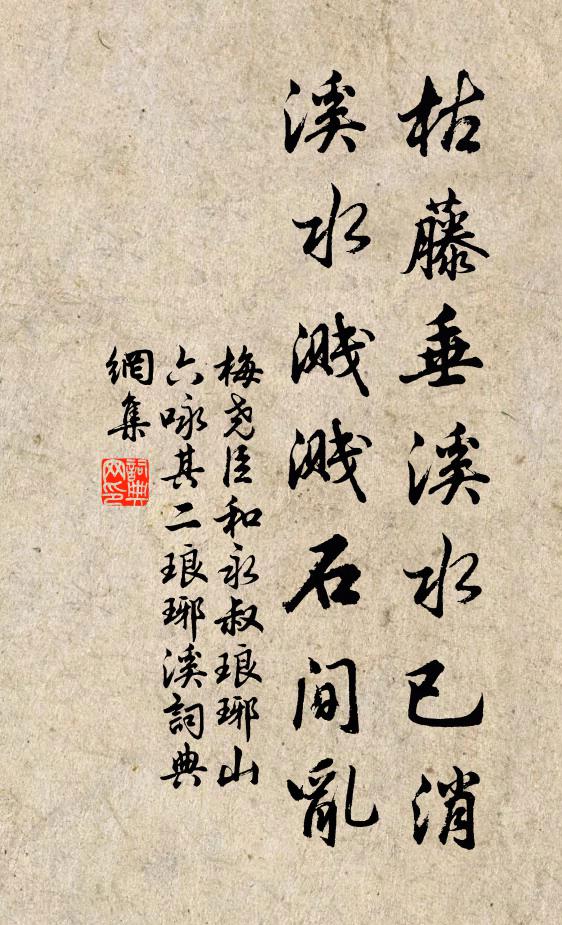 枯藤垂溪水已消
溪水濺濺石間亂
梅堯臣和永叔琅琊山
六咏其二琅琊溪詞典
網集
詞典
网印